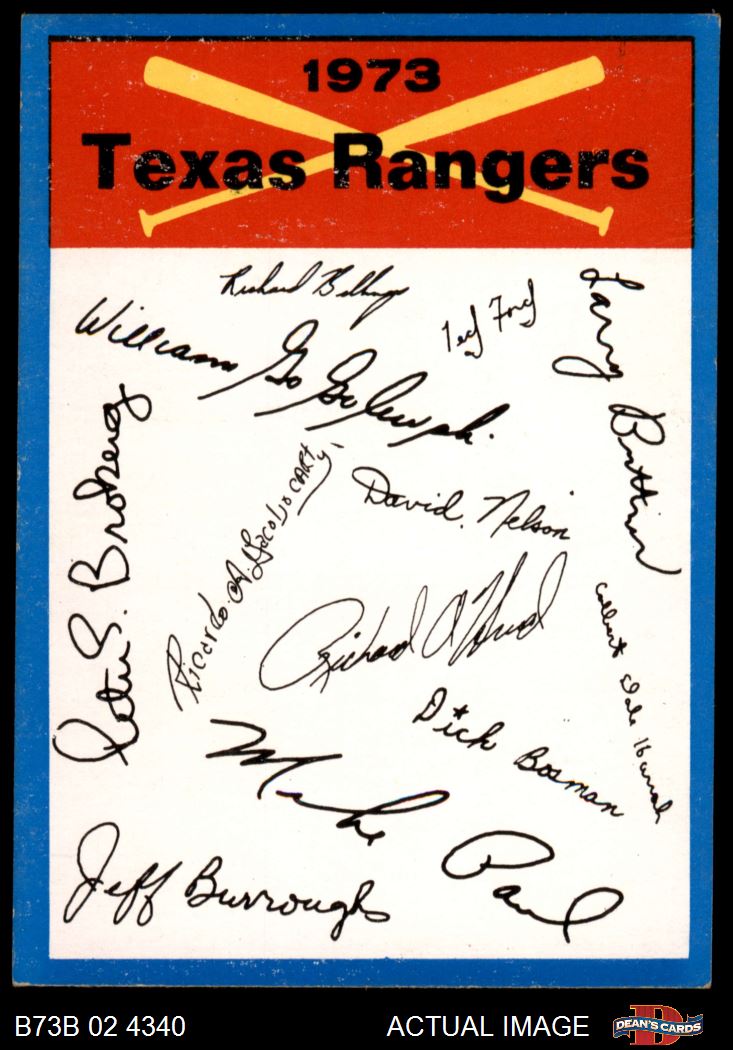 1973
Texas Rangers
Richard Billings
Ted Ford
Larry Biittner
William Go Gogolewski.
Peter S. Broberg
Ricardo. A. Jacobo CARTY
David. Nelson
Richard A Hand
Dick Bosman
Mike Paul
Jeff Burroughs
B73B 02 4340
ACTUAL IMAGE
DEAN'S CARDS